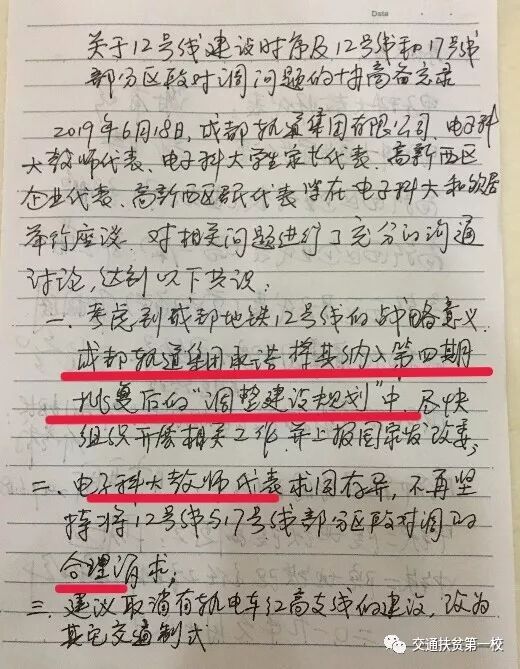 Date
关于12号线建设时序及12号线和17号线
部分区段对调问题的协商备忘录
2019年6月18日,成都轨道集团有限公司、电子科
大教师代表、电子科大学生家长代表、高新西区
企业代表、高新西区居民代表等在电子科大和的居
举行座谈,对相关问题进行了充分的沟通
讨论,达到以下共识:
一、考虑到成都地铁12号线的战略意义,
成都轨道集团承诺 将其纳入第四期
批复后的“调整建设规划”中,尽快
组织开展相关工作,并上报国家发改委;
二、电子科大教师代表求同存异,不再坚
持将12号线与17号线部分区段对调的
合理请求;
三、建议取消有轨电车红高支线的建设,改为
其它交通制式
交通扶贫第一校